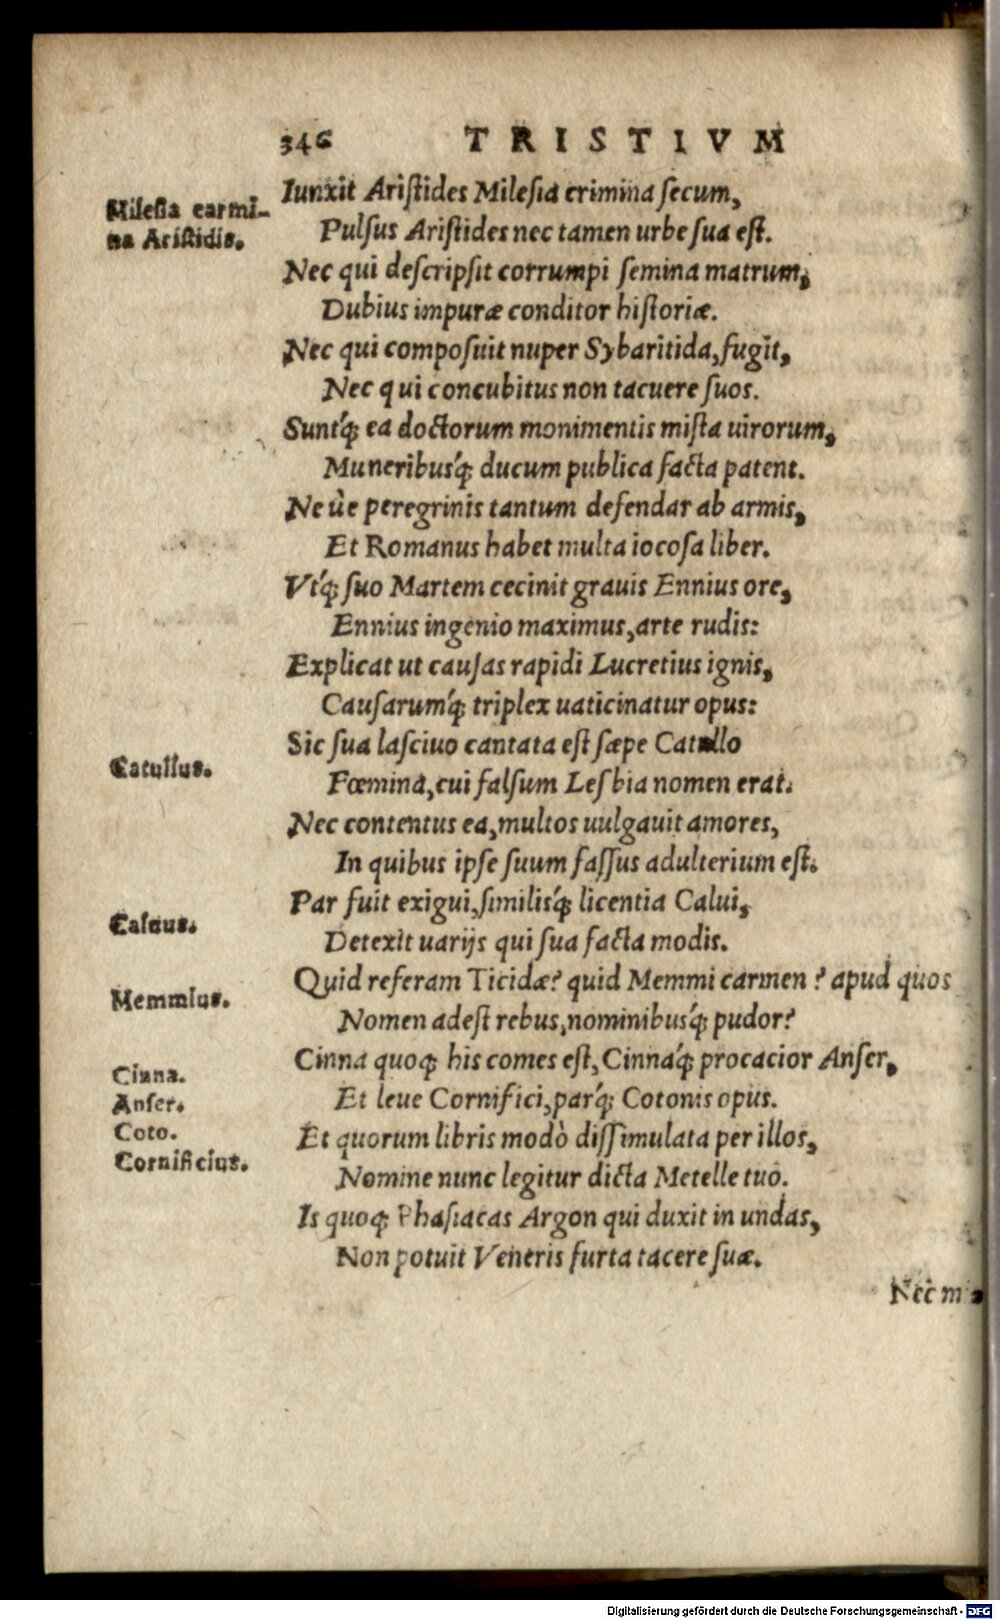 346 TRISTIVM
Milesia carmi-
na Aristidis.
Iunxit Aristides Milesia crimina secum,
Pulsus Aristides nec tamen urbe sua est.
Nec qui descripsit corrumpi semina matrum,
Dubius impuræ conditor historiæ.
Nec qui composuit nuper Sybaritida, fugit,
Nec qui concubitus non tacuere suos.
Suntq́; ea doctorum monimentis mista uirorum,
Muneribusq́; ducum publica facta patent.
Ne ûe peregrinis tantum defendar ab armis,
Et Romanus habet multa iocosa liber.
Vtq́; suo Martem cecinit grauis Ennius ore,
Ennius ingenio maximus, arte rudis:
Explicat ut causas rapidi Lucretius ignis,
Causarumq́; triplex uaticinatur opus:
Sic sua lasciuo cantata est sæpe Catullo
Catullus.
Fœmina, cui falsum Lesbia nomen erat.
Nec contentus ea, multos uulgauit amores,
In quibus ipse suum fassus adulterium est.
Par fuit exigui, similisq́; licentia Calui,
Caluus.
Detexit uarijs qui sua facta modis.
Quid referam Ticidæ? quid Memmi carmen? apud quos
Memmius.
Nomen adest rebus, nominibusq́; pudor?
Cinna quoq; his comes est, Cinnaq́; procacior Anser,
Cinna.
Anser.
Et leue Cornifici, parq́; Cotonis opus.
Coto.
Et quorum libris modò dissimulata per illos,
Cornificius.
Nomine nunc legitur dicta Metelle tuo.
Is quoq; Phasiacas Argon qui duxit in undas,
Non potuit Veneris furta tacere suæ.
Nec m
Digitalisierung gefördert durch die Deutsche Forschungsgemeinschaft - DFG